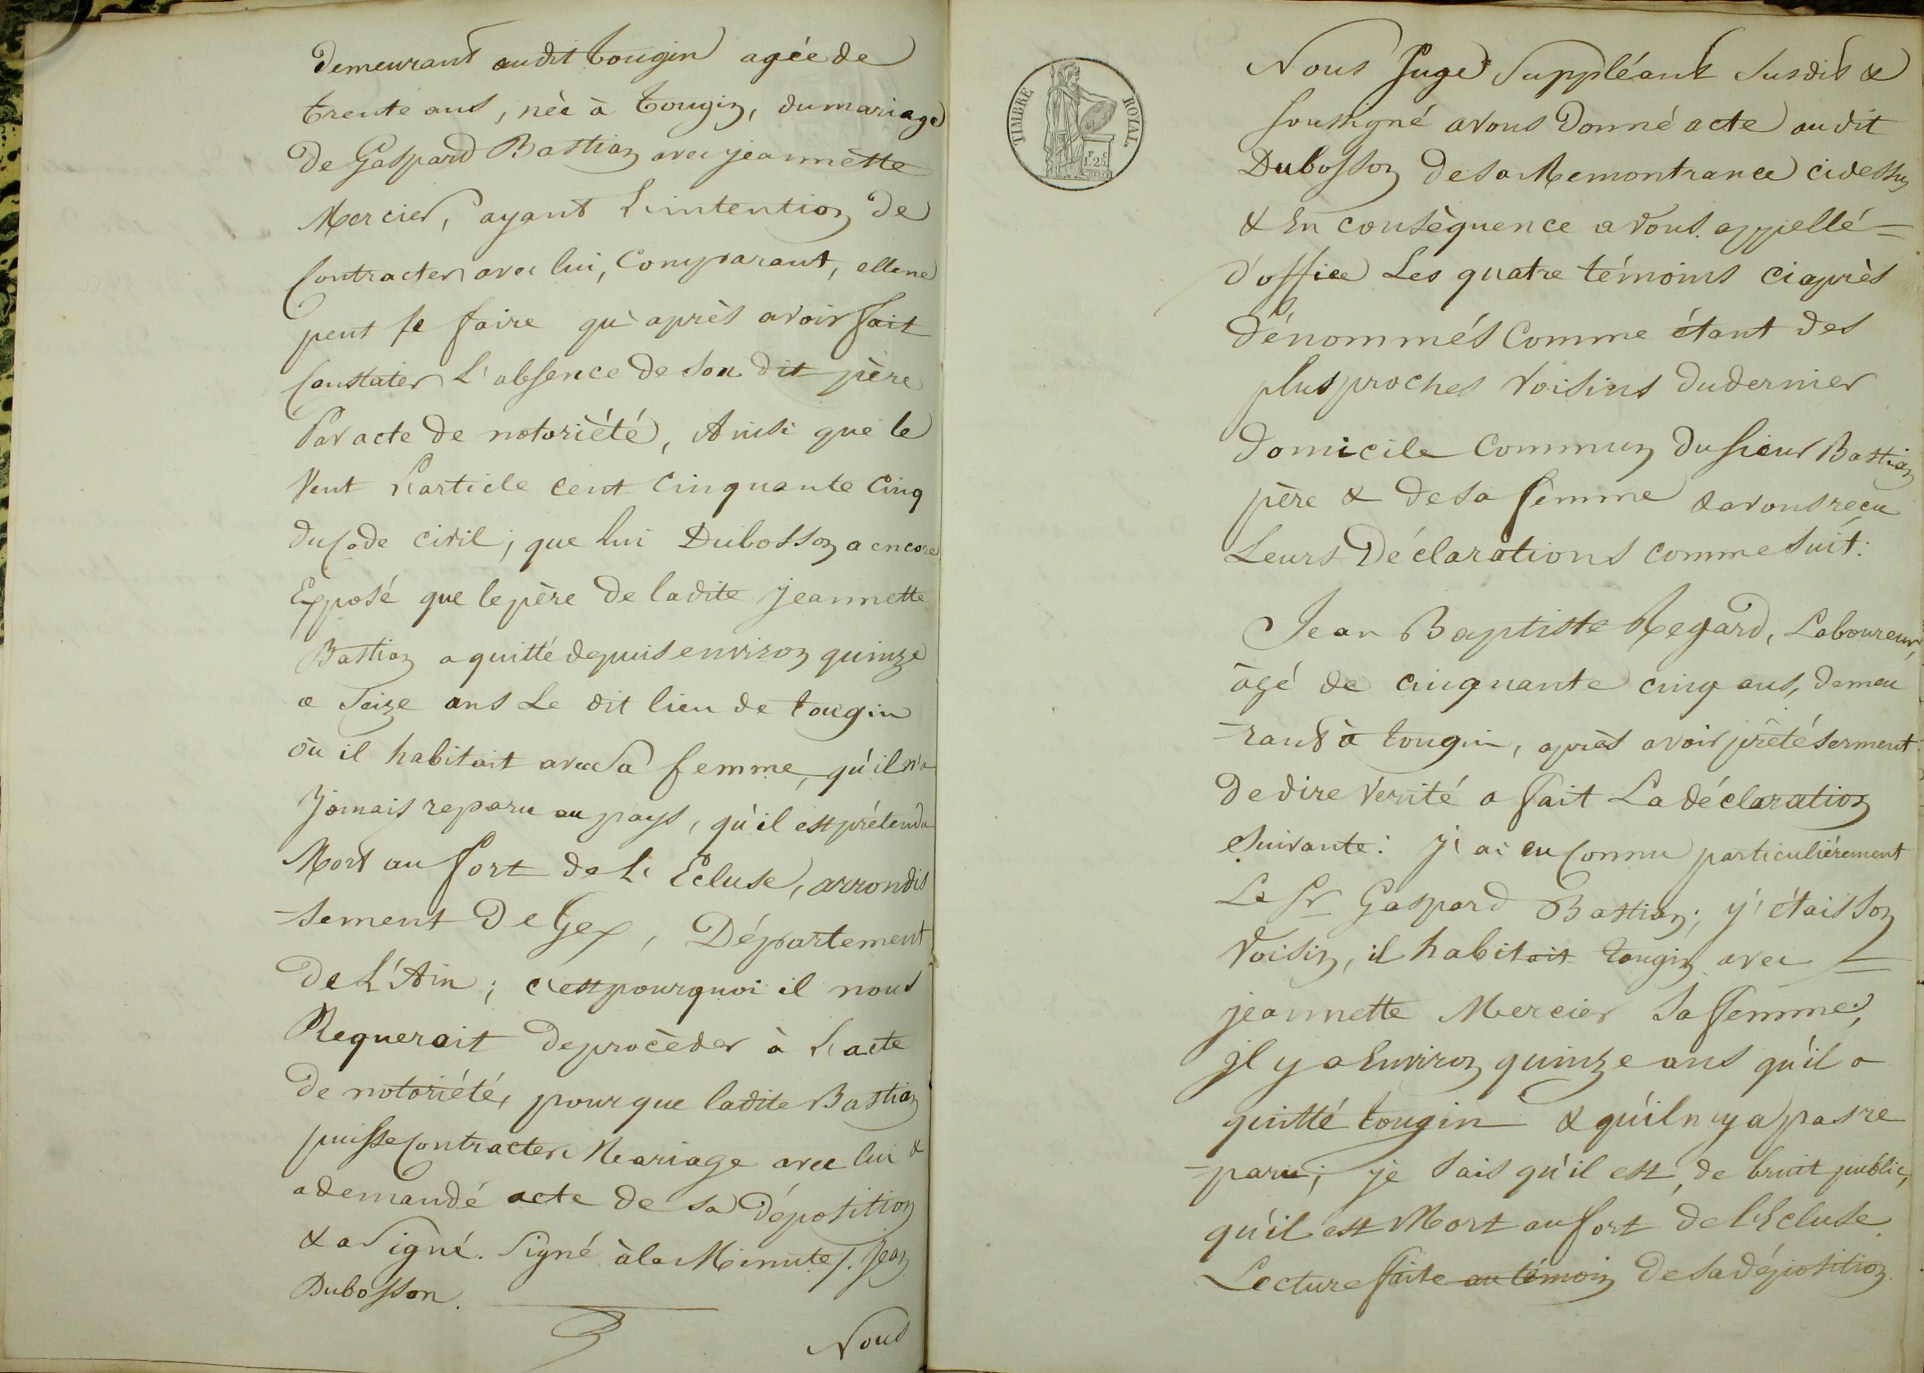 demeurant audit tougin agée de
trente ans, née à tougin, du mariage
de Gaspard Bastian avec jeannette
Mercier, ayant l'intention de
Contracter avec lui, Comparant, elle ne
peut le faire qu'après avoir fait
Constater l'absence de son dit père
Par acte de notoriété, Ainsi que le
Veut l'article cent cinquante cinq
du Code civil; que lui Dubosson a encore
Exposé que le père de ladite jeannette
Bastian a quitté depuis environ quinze
a Seize ans Le dit lieu de tougin
où il habitait avec Sa femme, qu'il n'a
jamais reparu au pays, qu'il est prétendu
Mort au fort de L'Ecluse, arrondis
-sement de Gex, Département
de L'Ain; c'est pourquoi il nous
Requerait de procèder à L'acte
de notoriété, pour que ladite Bastian
puisse Contracter Mariage avec lui &
a demandé acte de sa déposition
& a Signé. Signé à la Minute /. Jean
Dubosson.
Nous
TIMBRE ROYAL
1F.25
Nous Juge Suppléant Susdit &
Soussigné avons donné acte audit
Dubosson de sa Remontrance cidessus
& En conséquence avons appellé
d'office Les quatre témoins ciaprès
dénommés Comme étant des
plus proches Voisins du dernier
domicile Commun du Sieur Bastian
père & de sa femme & avons reçu
Leurs Déclarations comme Suit:
Jean Baptiste Regard, Laboureur,
âgé de cinquante cinq ans, demeu
-rant à tougin, après avoir prêté serment
de dire Verité a fait La déclaration
Suivante: j'ai eu Connu particuliérement
Le Sr Gaspard Bastian; j'étais Son
Voisin, il habitait tougin avec
jeannette Mercier Sa femme,
il y a Environ quinze ans qu'il a
quitté tougin & qu'il n'y a pas re
-paru; je Sais qu'il est, de bruit public,
qu'il est Mort au fort de l'Ecluse.
Lecture faite au témoin de Sa déposition